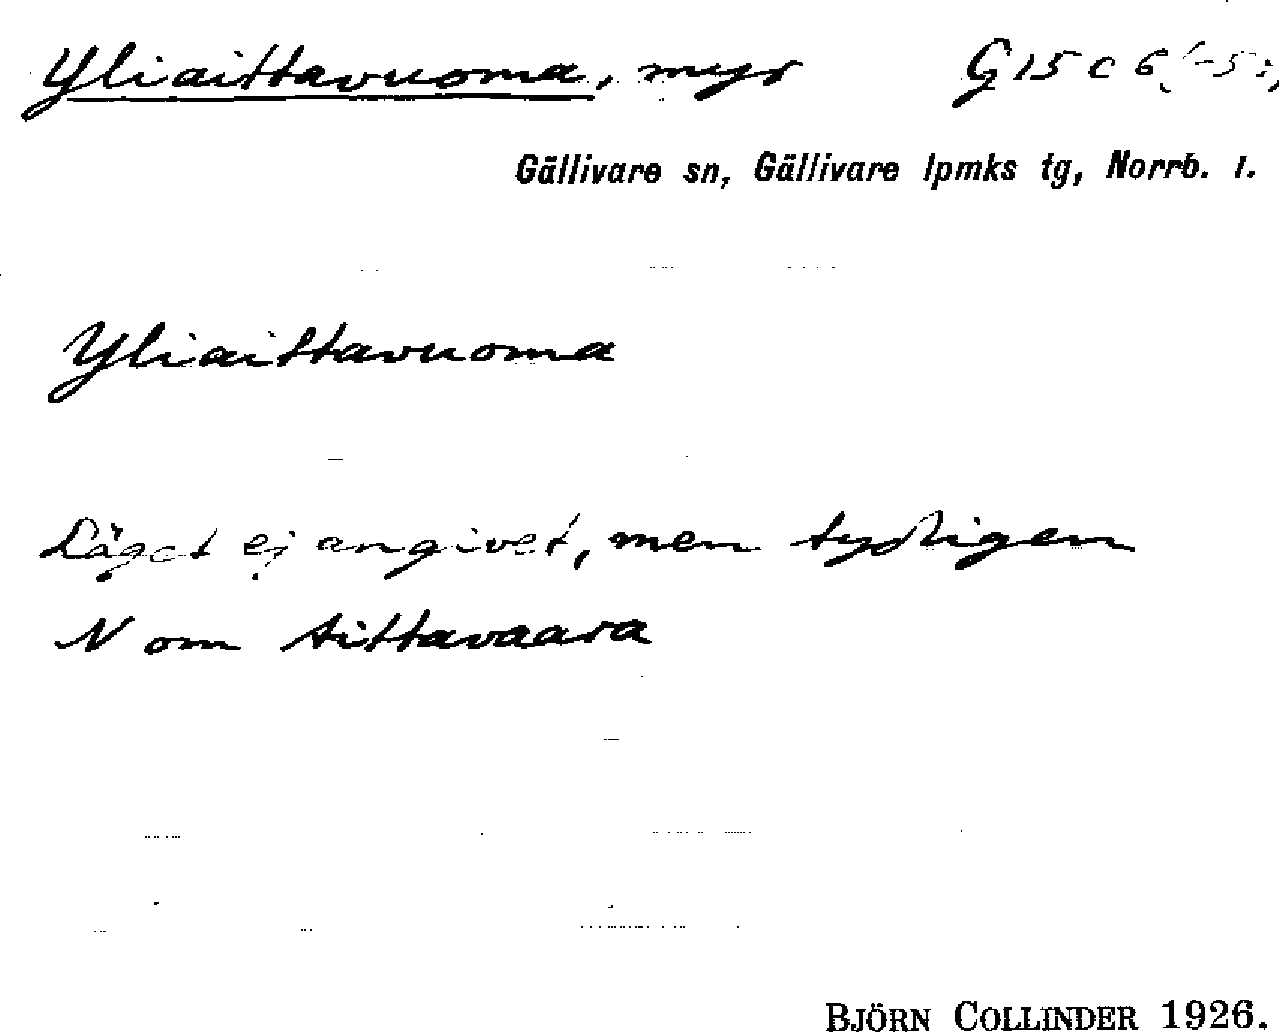 Yliaittavuoma, myr G 15 c 6
Gällivare sn, Gällivare lpmks tg, Norrb. l.
Yliaittavuoma
Läget ej angivet, men tydligen
N om Aittavaara
BJÖRN COLLINDER 1926.